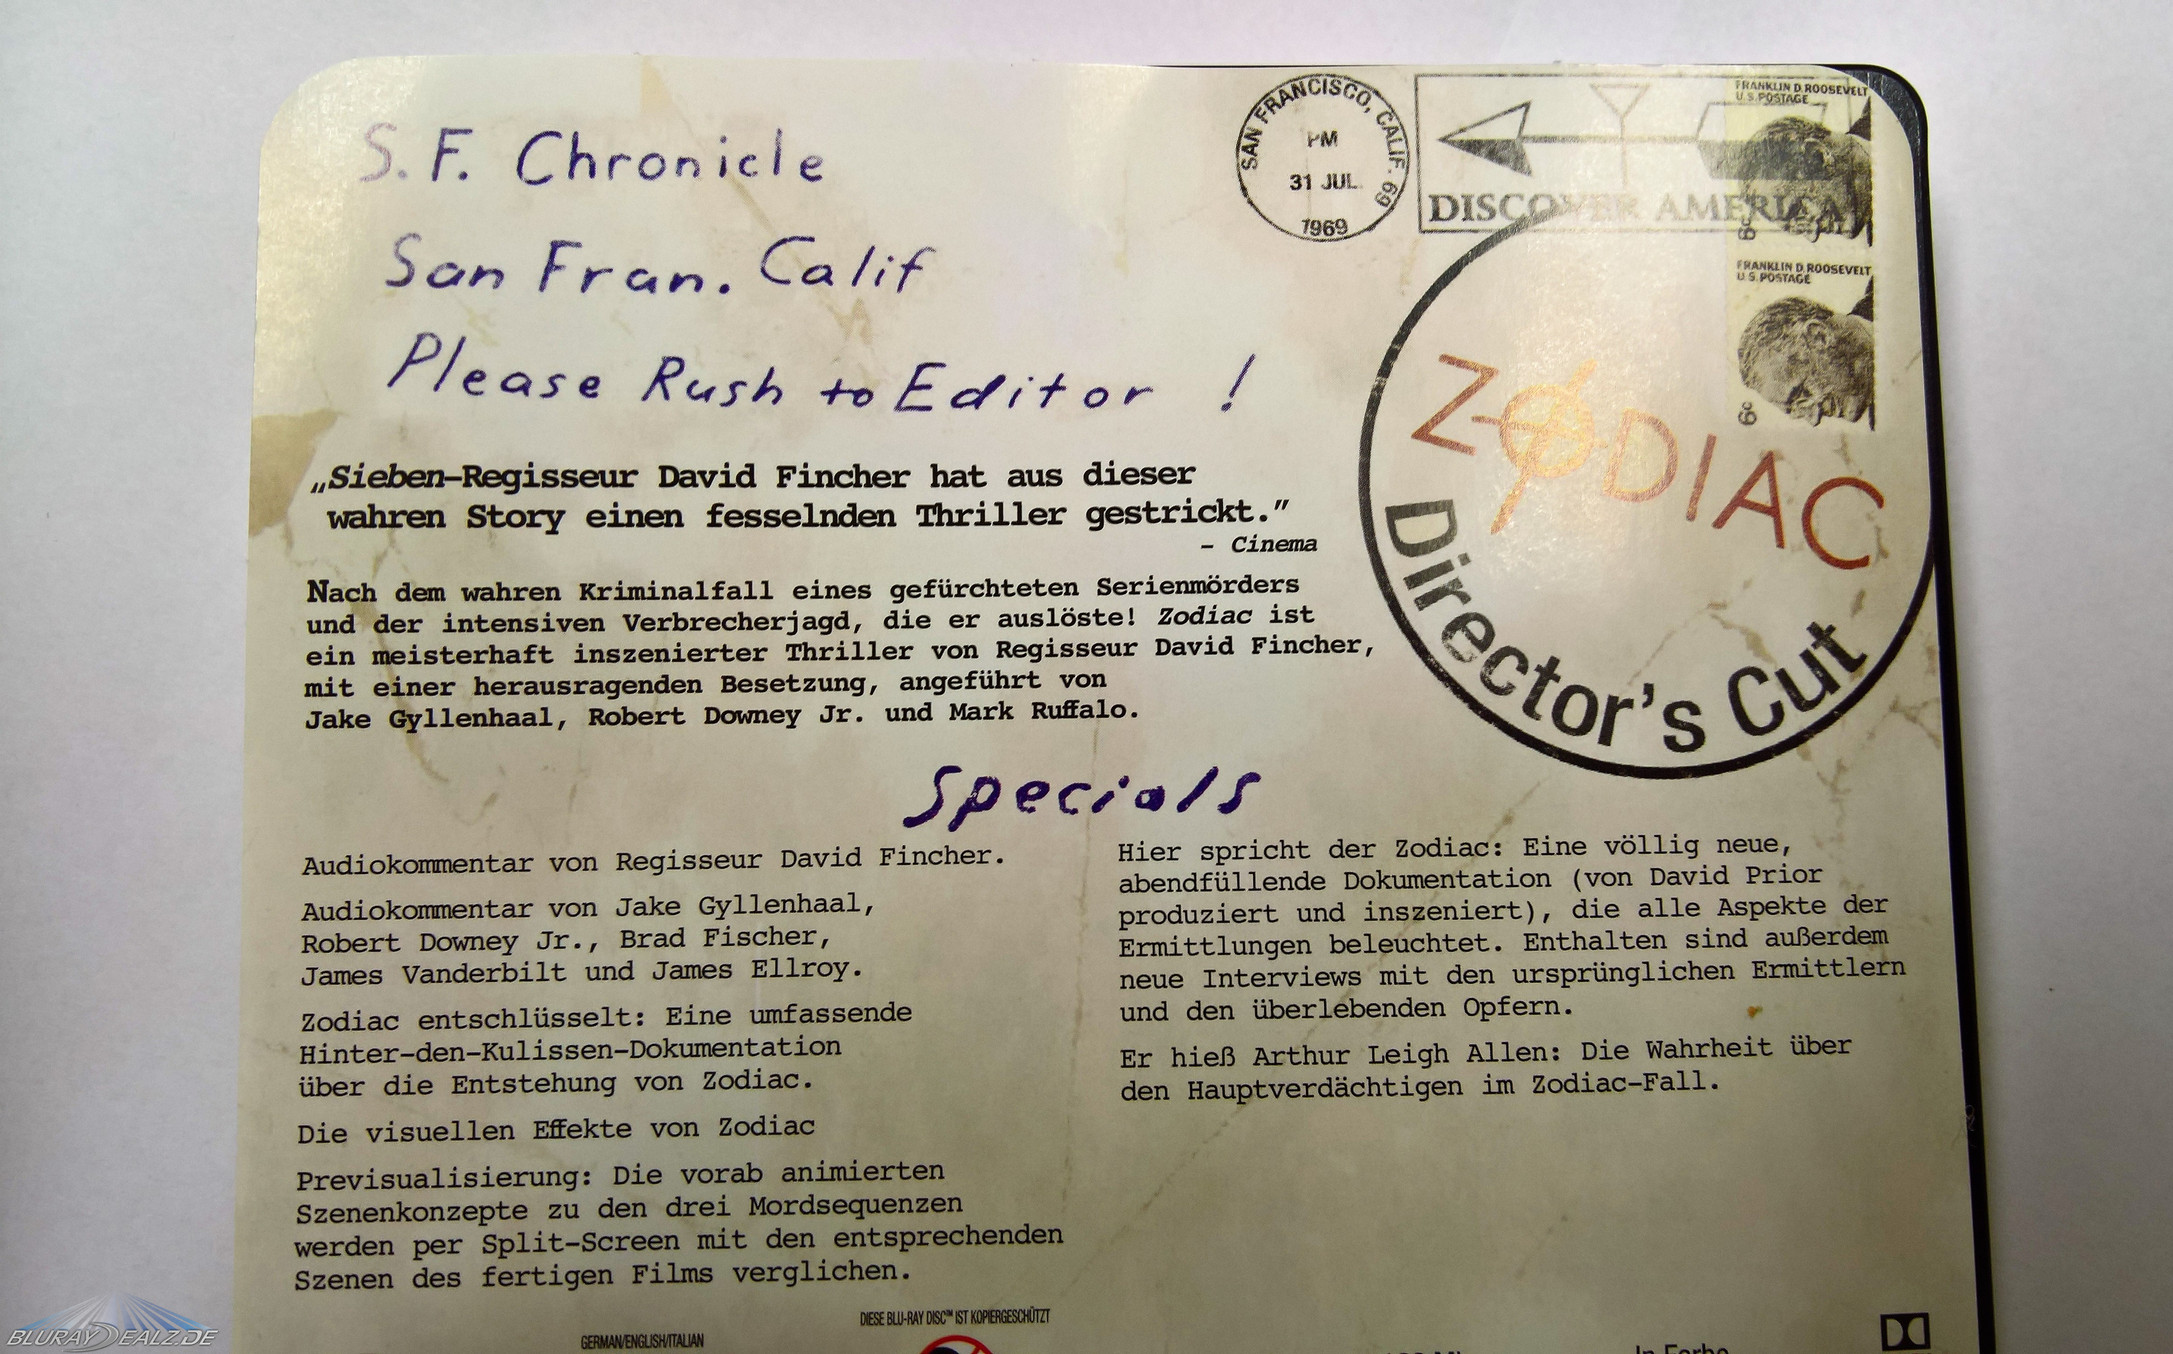 S.F. Chronicle
San Fran. Calif
Please Rush to Editor !
SAN FRANCISCO, CALIF. 69
PM
31 JUL
1969
DISCOVER AMERICA
FRANKLIN D. ROOSEVELT
U.S. POSTAGE
6c
FRANKLIN D. ROOSEVELT
U.S. POSTAGE
6c
ZODIAC
Director's Cut
„Sieben-Regisseur David Fincher hat aus dieser
wahren Story einen fesselnden Thriller gestrickt.”
- Cinema
Nach dem wahren Kriminalfall eines gefürchteten Serienmörders
und der intensiven Verbrecherjagd, die er auslöste! Zodiac ist
ein meisterhaft inszenierter Thriller von Regisseur David Fincher,
mit einer herausragenden Besetzung, angeführt von
Jake Gyllenhaal, Robert Downey Jr. und Mark Ruffalo.
Specials
Audiokommentar von Regisseur David Fincher.
Audiokommentar von Jake Gyllenhaal,
Robert Downey Jr., Brad Fischer,
James Vanderbilt und James Ellroy.
Zodiac entschlüsselt: Eine umfassende
Hinter-den-Kulissen-Dokumentation
über die Entstehung von Zodiac.
Die visuellen Effekte von Zodiac
Previsualisierung: Die vorab animierten
Szenenkonzepte zu den drei Mordsequenzen
werden per Split-Screen mit den entsprechenden
Szenen des fertigen Films verglichen.
Hier spricht der Zodiac: Eine völlig neue,
abendfüllende Dokumentation (von David Prior
produziert und inszeniert), die alle Aspekte der
Ermittlungen beleuchtet. Enthalten sind außerdem
neue Interviews mit den ursprünglichen Ermittlern
und den überlebenden Opfern.
Er hieß Arthur Leigh Allen: Die Wahrheit über
den Hauptverdächtigen im Zodiac-Fall.
DIESE BLU-RAY DISC™ IST KOPIERGESCHÜTZT
GERMAN/ENGLISH/ITALIAN
In Farbe
BLURAYDEALZ.DE